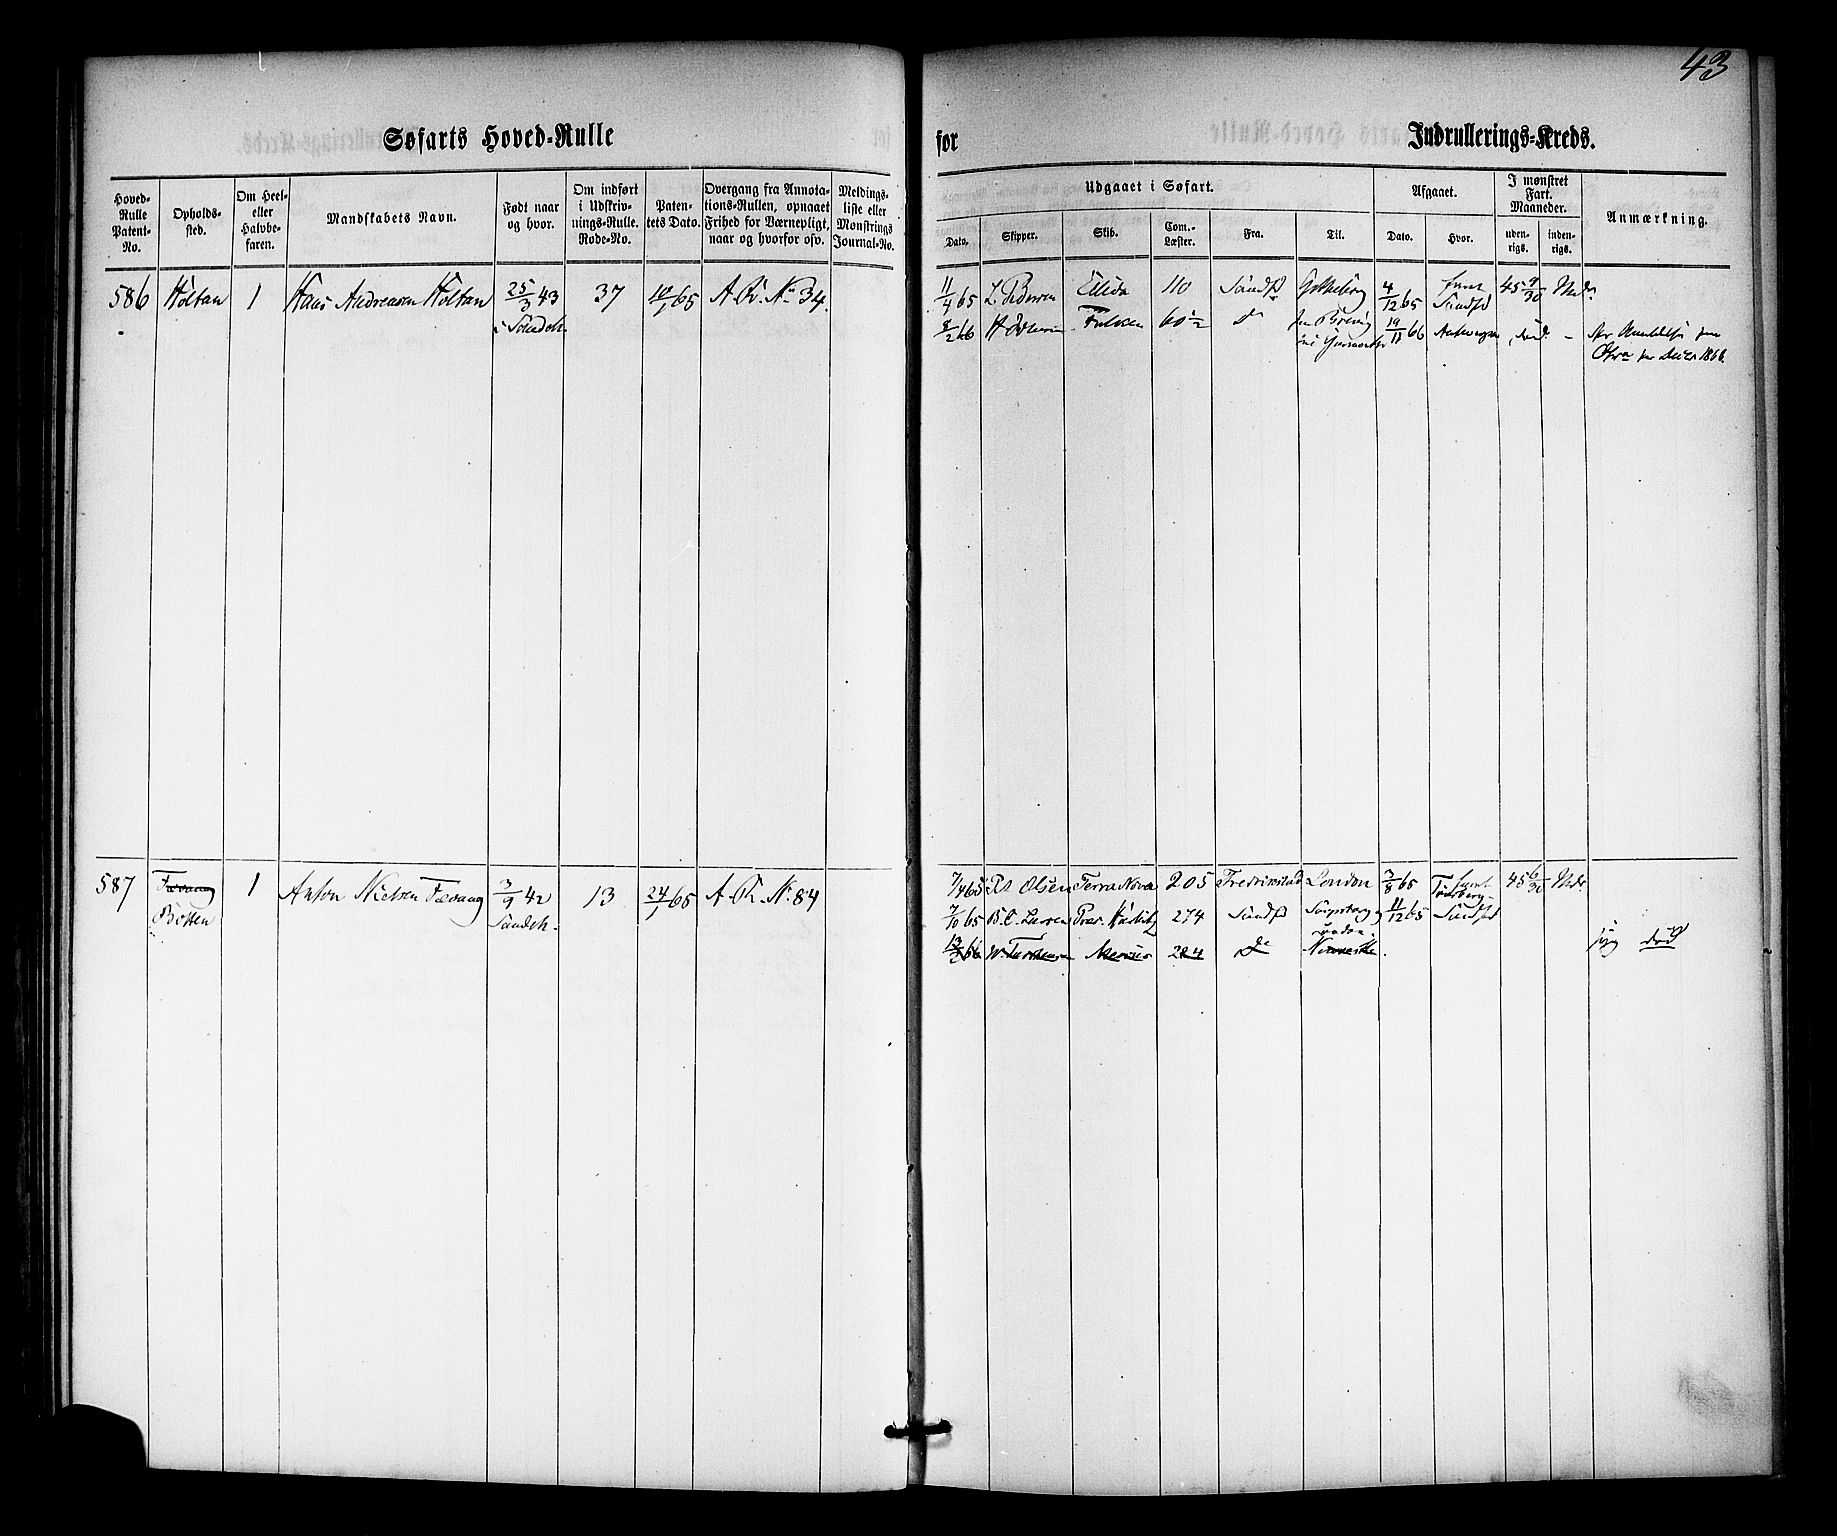 43
Søfarts Hoved-Rulle
for
Indrullerings-Kreds.
Hoved-Rulle Patent-No.
Opholds-sted.
Om Heel- eller Halvbe-faren.
Mandskabets Navn.
Født naar og hvor.
Om indført i Udskriv-nings-Rulle. Rode-No.
Paten-tets Dato.
Overgang fra Annota-tions-Rullen, opnaaet Frihed for Værnepligt, naar og hvorfor osv.
Meldings-liste eller Mønstrings Journal-No.
Udgaaet i Søfart.
Dato.
Skipper.
Skib.
Com.-Læster.
Fra.
Til.
Afgaaet.
Dato.
Hvor.
I mønstret Fart. Maaneder.
uden-rigs.
inden-rigs.
Anmærkning.
586 Holtan 1 Hans Andreasen Holtan 25/3 43 37 10/1 65 A. R. No 34.
i Sandeh.
11/4 65 L. Pedersen Ellida 110 Sandfd 4/12 65 Sandfd 45 9/30 Mdr
8/2 66 Falken 60 1/2 do 19/11 66 Antwerpen død -
for Decbr 1866.
587 Fævang 1 Anton Nielsen Fævang 3/9 42 13 24/1 65 A. R. No. 84
Botten Sandeh.
7/4 65 Olsen Terra Nova 205 Fredrikstad London 3/8 65 Tønsberg 45 6/30 Mdr
7/10 65 B. C. Larsen Præs. 274 Sandfd 11/12 65 Sandfd
13/2 66 224 do
syg død